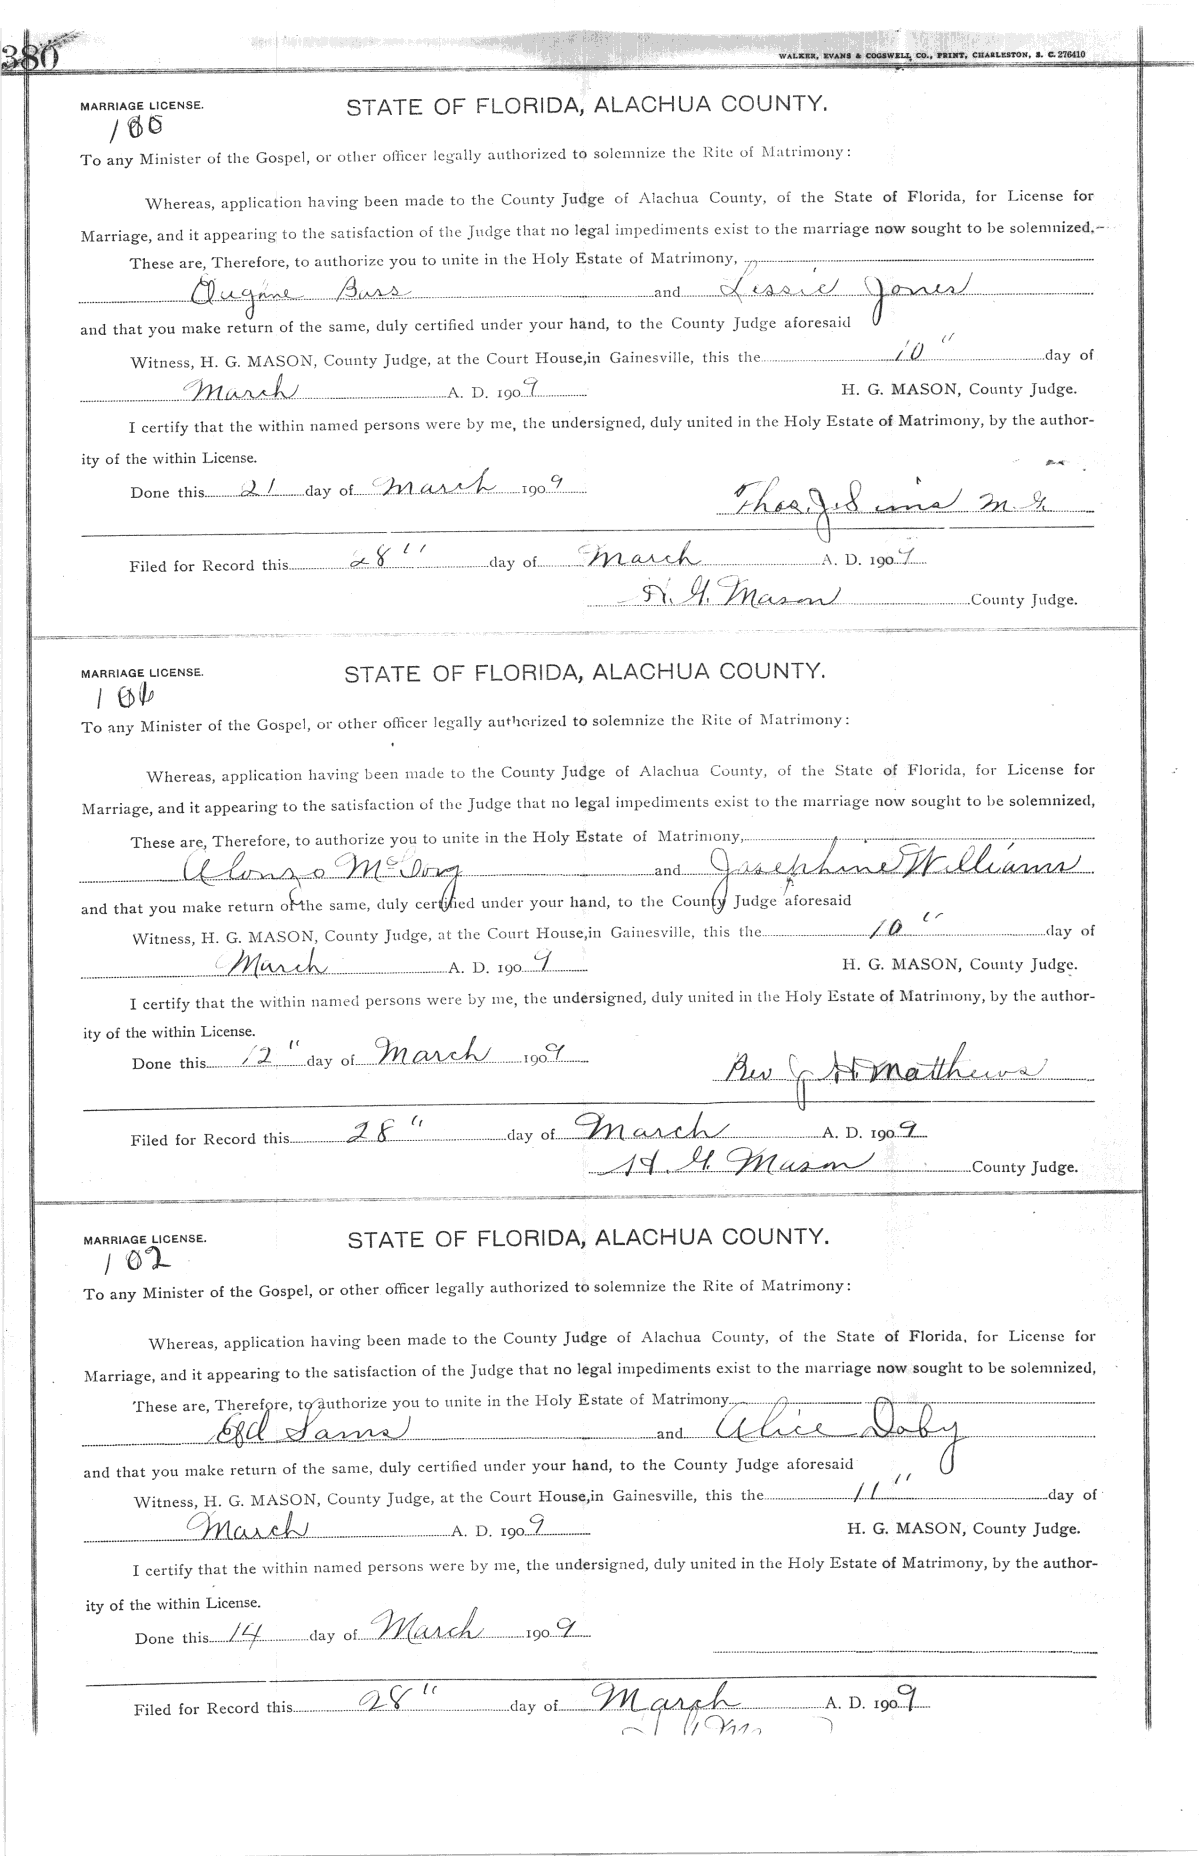 380
WALKER, EVANS & COGSWELL CO., PRINT, CHARLESTON, S. C. 276410
MARRIAGE LICENSE. STATE OF FLORIDA, ALACHUA COUNTY.
To any Minister of the Gospel, or other officer legally authorized to solemnize the Rite of Matrimony:
Whereas, application having been made to the County Judge of Alachua County, of the State of Florida, for License for
Marriage, and it appearing to the satisfaction of the Judge that no legal impediments exist to the marriage now sought to be solemnized,
These are, Therefore, to authorize you to unite in the Holy Estate of Matrimony,
and Lessie Jones
and that you make return of the same, duly certified under your hand, to the County Judge aforesaid
Witness, H. G. MASON, County Judge, at the Court House, in Gainesville, this the 10" day of
March A. D. 1909 H. G. MASON, County Judge.
I certify that the within named persons were by me, the undersigned, duly united in the Holy Estate of Matrimony, by the author-
ity of the within License.
Done this 21 day of March 1909
Thos. J. Sims M. G.
Filed for Record this 28" day of March A. D. 1909
H. G. Mason County Judge.
MARRIAGE LICENSE. STATE OF FLORIDA, ALACHUA COUNTY.
106
To any Minister of the Gospel, or other officer legally authorized to solemnize the Rite of Matrimony:
Whereas, application having been made to the County Judge of Alachua County, of the State of Florida, for License for
Marriage, and it appearing to the satisfaction of the Judge that no legal impediments exist to the marriage now sought to be solemnized,
These are, Therefore, to authorize you to unite in the Holy Estate of Matrimony,
Alonzo and Josephine Williams
and that you make return of the same, duly certified under your hand, to the County Judge aforesaid
Witness, H. G. MASON, County Judge, at the Court House, in Gainesville, this the 10" day of
March A. D. 1909 H. G. MASON, County Judge.
I certify that the within named persons were by me, the undersigned, duly united in the Holy Estate of Matrimony, by the author-
ity of the within License.
Done this 12" day of March 1909
Rev J H Matthews
Filed for Record this 28" day of March A. D. 1909
H. G. Mason County Judge.
MARRIAGE LICENSE. STATE OF FLORIDA, ALACHUA COUNTY.
102
To any Minister of the Gospel, or other officer legally authorized to solemnize the Rite of Matrimony:
Whereas, application having been made to the County Judge of Alachua County, of the State of Florida, for License for
Marriage, and it appearing to the satisfaction of the Judge that no legal impediments exist to the marriage now sought to be solemnized,
These are, Therefore, to authorize you to unite in the Holy Estate of Matrimony
Ed Sams and Alice Doby
and that you make return of the same, duly certified under your hand, to the County Judge aforesaid
Witness, H. G. MASON, County Judge, at the Court House, in Gainesville, this the 11" day of
March A. D. 1909 H. G. MASON, County Judge.
I certify that the within named persons were by me, the undersigned, duly united in the Holy Estate of Matrimony, by the author-
ity of the within License.
Done this 14 day of March 1909
Filed for Record this 28" day of March A. D. 1909